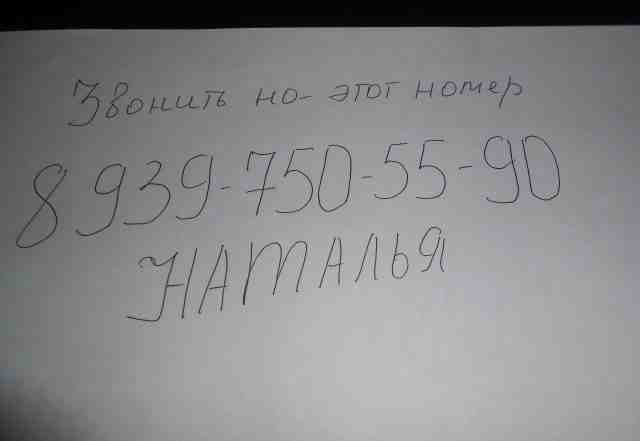 Звонить но- этот номер
8 939-750-55-90
НАТАЛЬЯ